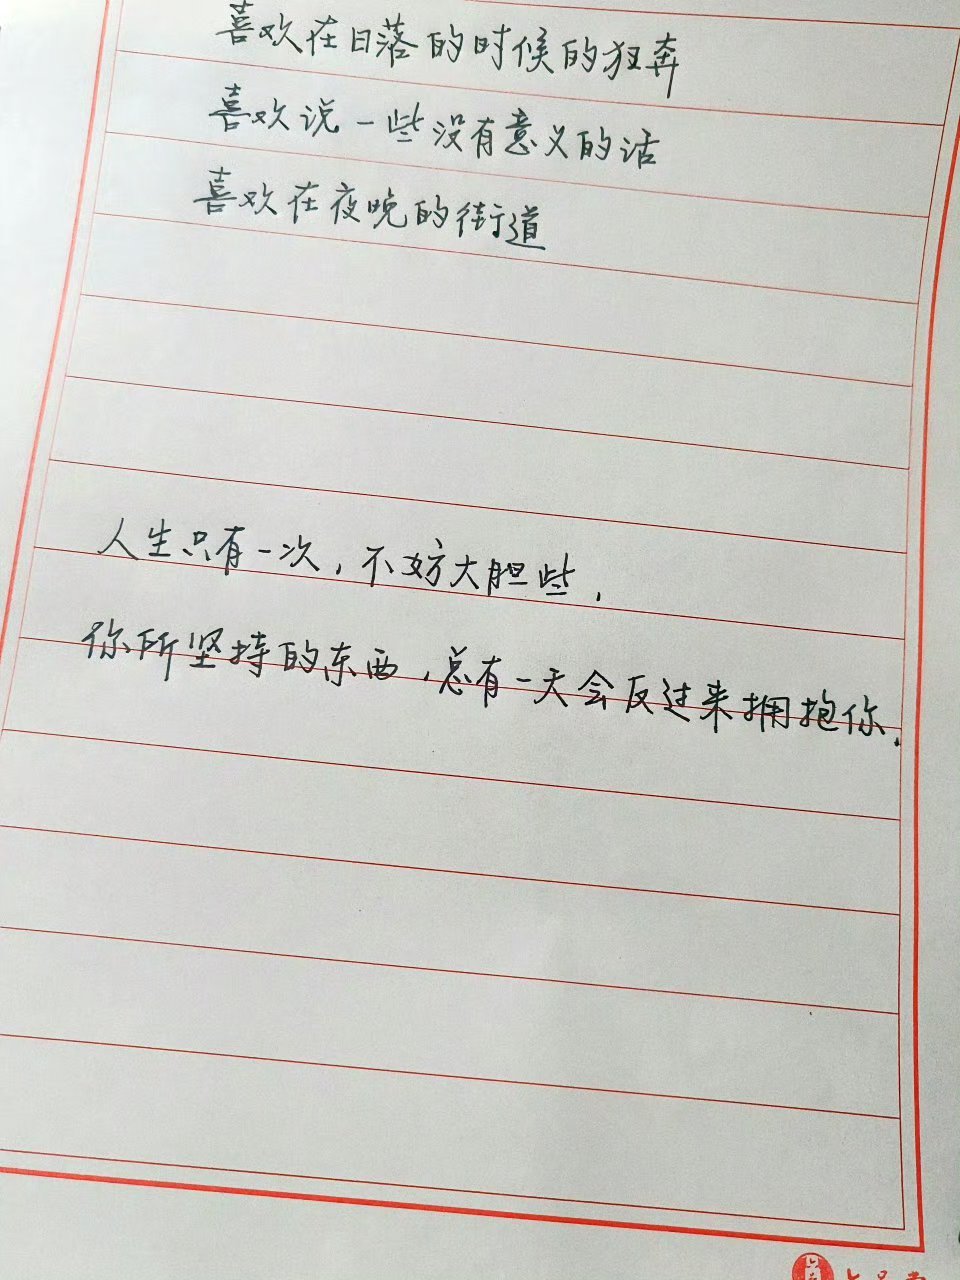 喜欢在日落的时候的狂奔
喜欢说一些没有意义的话
喜欢在夜晚的街道
人生只有一次，不妨大胆些，
你所坚持的东西，总有一天会反过来拥抱你.